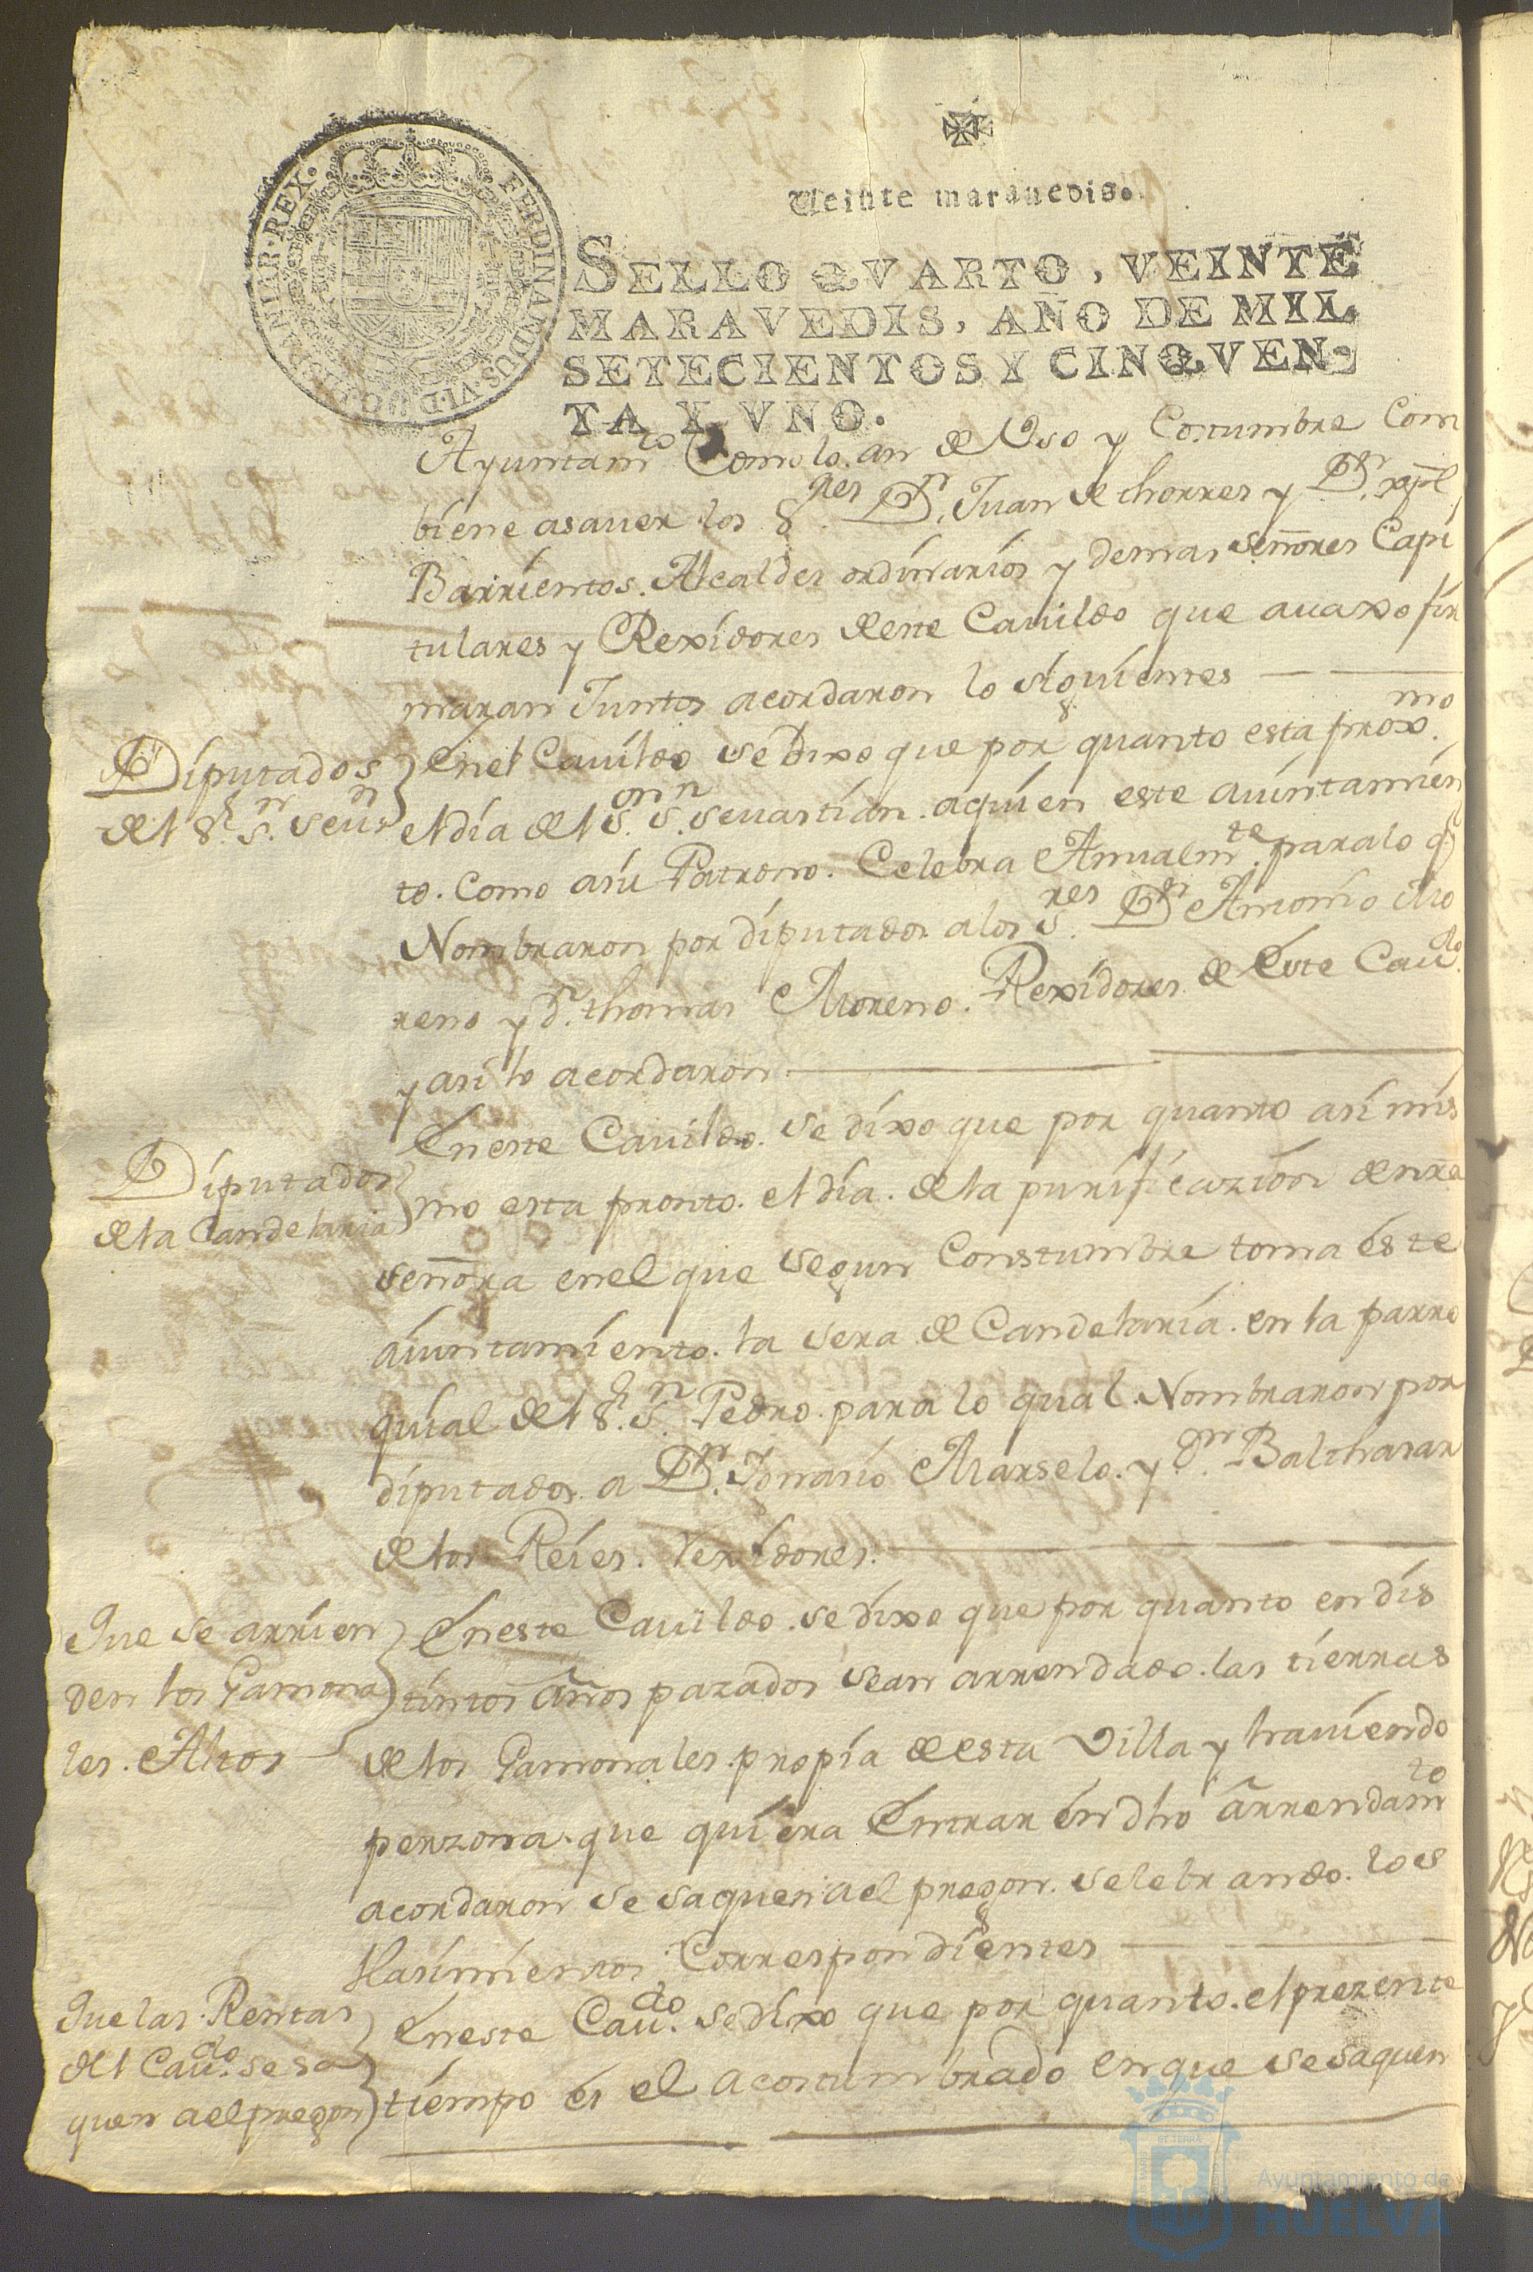 FERDINANDUS·VI·D·G·HISPANIAR·REX·
Veinte maravedis.
SELLO QVARTO, VEINTE
MARAVEDIS, AÑO DE MIL
SETECIENTOS Y CINQVEN-
TA Y VNO.
Ayuntam.to Como lo an de Vso y Costumbre Com
biene asauer los S.res D.n Juan de thorres y D.n xptl
Barrientos. Alcaldes ordinarios y demas señores Capi
tulares y Rexidores deste Cauildo que auaxo fir
maran Juntos acordaron lo siguientes
Diputados
del S.r S.n Seu.n
En el Cauildo se Dixo que por quanto esta prox.mo
el dia del S.or S.n Seuastian. aquien este aiuntamien
to. como asu Patrono. Celebra Anualm.te para lo q.
Nombraron por diputados alos S.res D.n Antonio Mo
reno y D.n thomas Moreno. Rexidores de Este Cau.do
y asi lo acordaron
Diputados
de la Candelaria
En este Cauildo. se dixo que por quanto asi mis
mo esta pronto. el dia. de la purificazion de nra
señora en el que segun Constumbre toma este
aiuntamiento. la sera de Candelaria. en la parro
quial del S.r S.n Pedro. para lo qual. Nombraron por
diputados. a D.n Ignasio Marselo. y D.n Balthasar
de los Reies. rexidores.
Que se arrien
den los Gamona
les. Altos
En este Cauildo. se dixo que por quanto en dis
tintos años pazados sean arrendado. las tierras
de los Gamonales. propia de esta Villa y hauiendo
perzona. que quiera Entrar en dho arrendam.to
acordaron se saquen a el pregon. selebrando. los
Hasimientos Correspondientes
Que las Rentas
del Cau.do se sa
quen a el pregon
En este Cau.do se dixo que por quanto. el prezente
tiempo es el acostumbrado en que se saquen
Ayuntamiento de
HUELVA